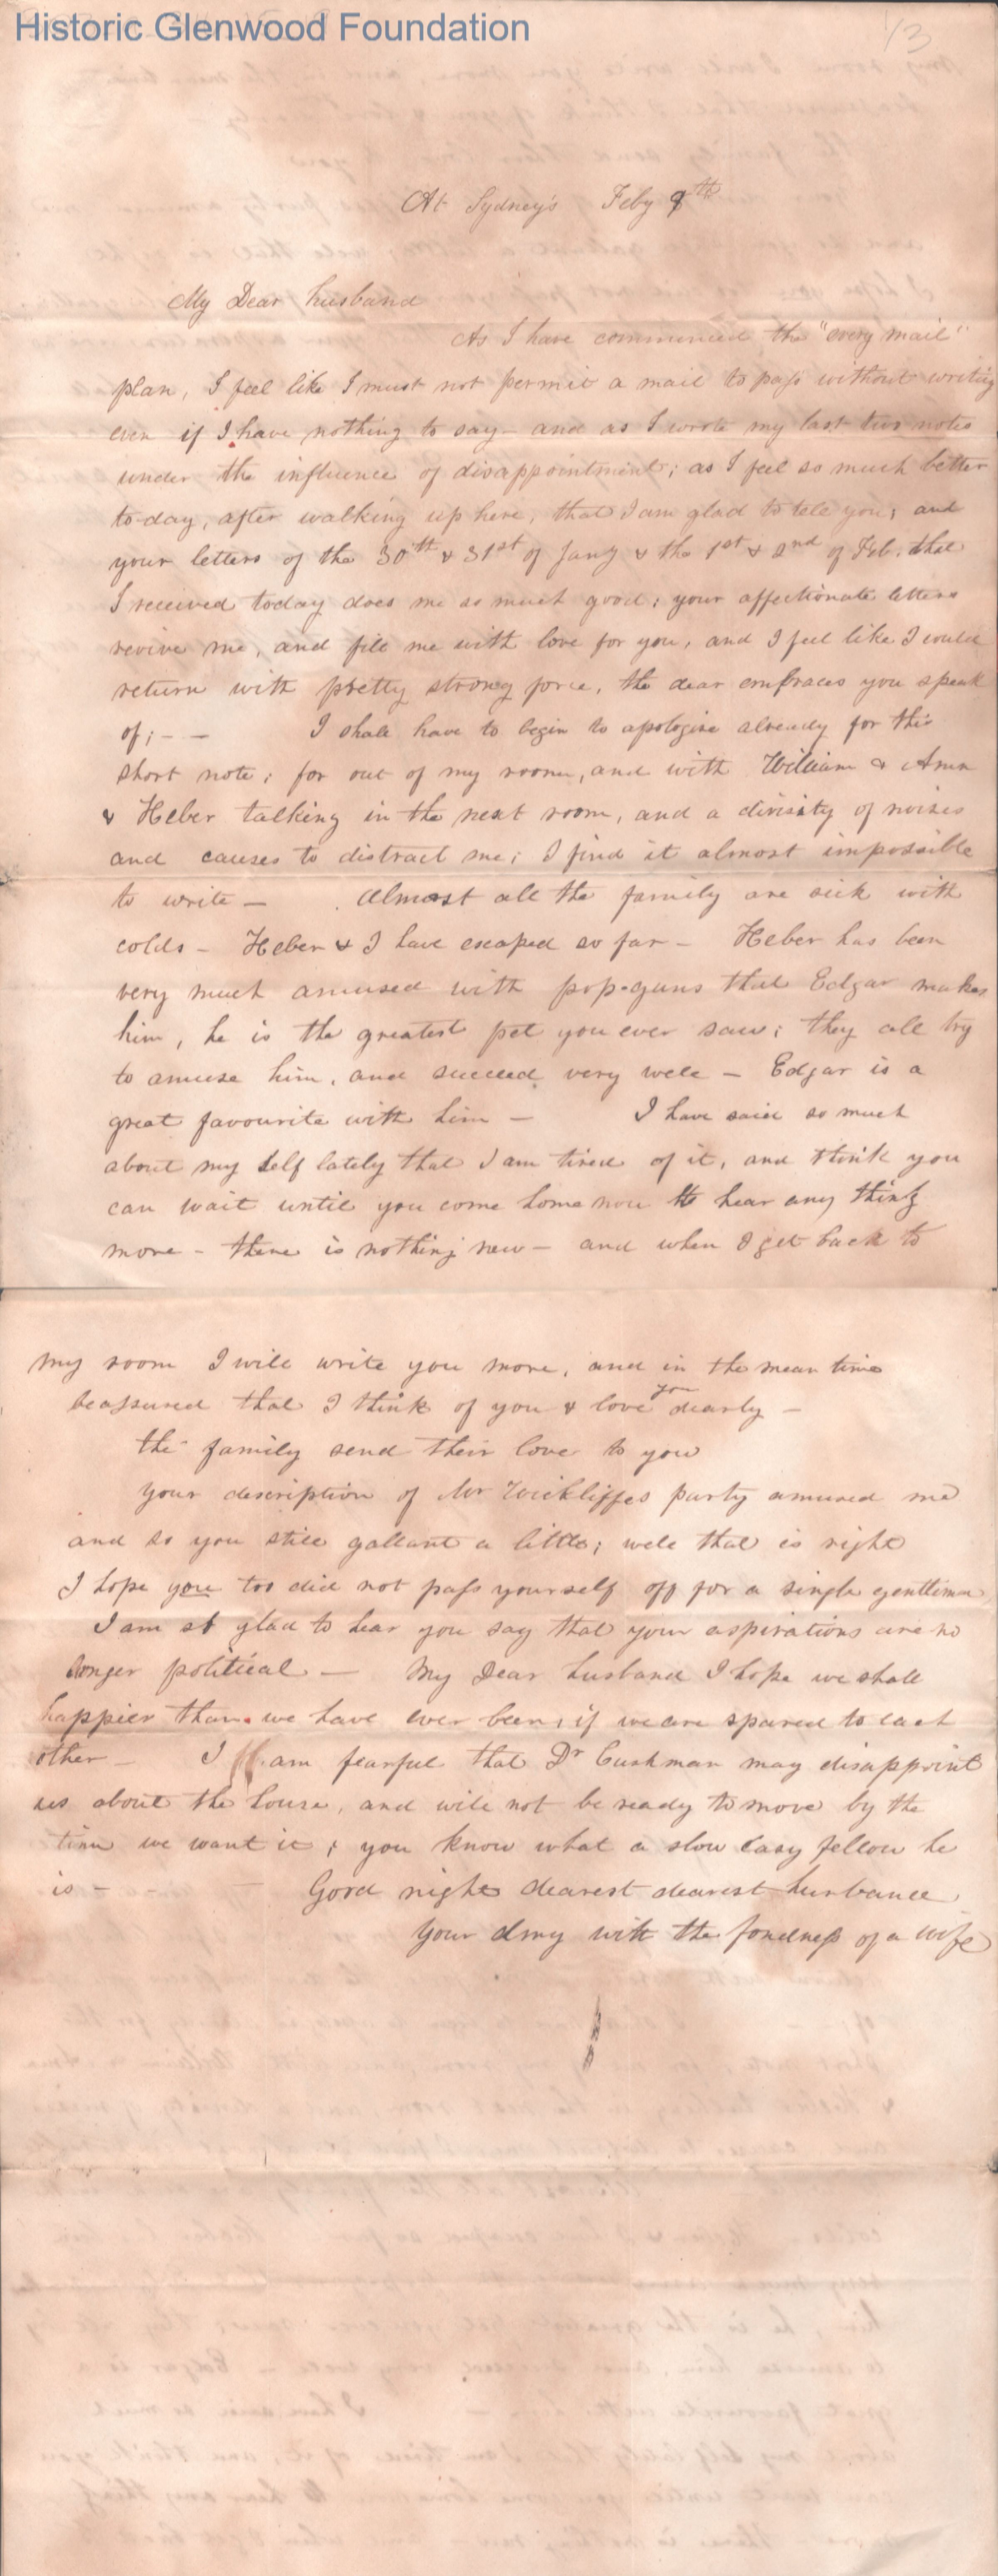 Historic Glenwood Foundation
1/3
At Sydney's Feby 9th
My Dear husband
As I have commenced the "every mail"
plan, I feel like I must not permit a mail to pass without writing
even if I have nothing to say - and as I wrote my last two notes
under the influence of disappointment; as I feel so much better
to-day, after walking up here, that I am glad to tell you; and
your letters of the 30th & 31st of Jany & the 1st & 2nd of Feb. that
I received today does me so much good; your affectionate letters
revive me, and fill me with love for you, and I feel like I could
return with pretty strong force, the dear embraces you speak
of; - - I shall have to begin to apologise already for this
short note; for out of my room, and with William & Ann
& Heber talking in the next room, and a divisity of noises
and causes to distract me; I find it almost impossible
to write - Almost all the family are sick with
colds - Heber & I have escaped so far - Heber has been
very much amused with pop-guns that Edgar makes
him, he is the greatest pet you ever saw; they all try
to amuse him, and succeed very well - Edgar is a
great favourite with him - I have said so much
about my self lately that I am tired of it, and think you
can wait until you come home now to hear any thing
more - there is nothing new - and when I get back to
my room I will write you more, and in the mean time
be assured that I think of you & love you dearly -
the family send their love to you
your description of Mr Wickliffes party amused me
and so you still gallant a little; well that is right
I hope you too did not pass yourself off for a single gentleman
I am glad to hear you say that your aspirations are no
longer political - My Dear husband I hope we shall
happier than we have ever been, if we are spared to each
other - I am fearful that Dr Cushman may disappoint
us about the house, and will not be ready to move by the
time we want it; you know what a slow easy fellow he
is - Good night dearest dearest husband,
your Amy with the fondness of a wife